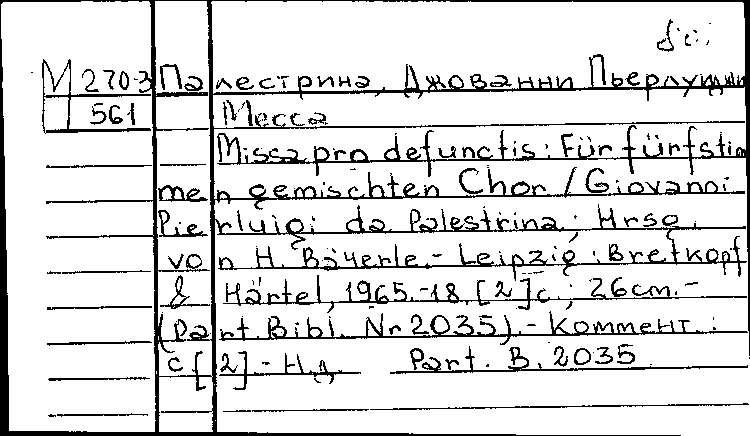 М 270-3 Палестрина, Джованни Пьерлуиджи
561 Месса
Missa pro defunctis: Für fürfstim
men gemischten Chor / Giovanni
Pierluigi da Palestrina; Hrsg.
von H. Bäuerle.- Leipzig: Bretkopf
& Härtel, 1965.-18, [2]с.; 26cm.-
(Part. Bibl. Nr 2035).- Коммент.:
с [2].- Н.д. Part. B. 2035